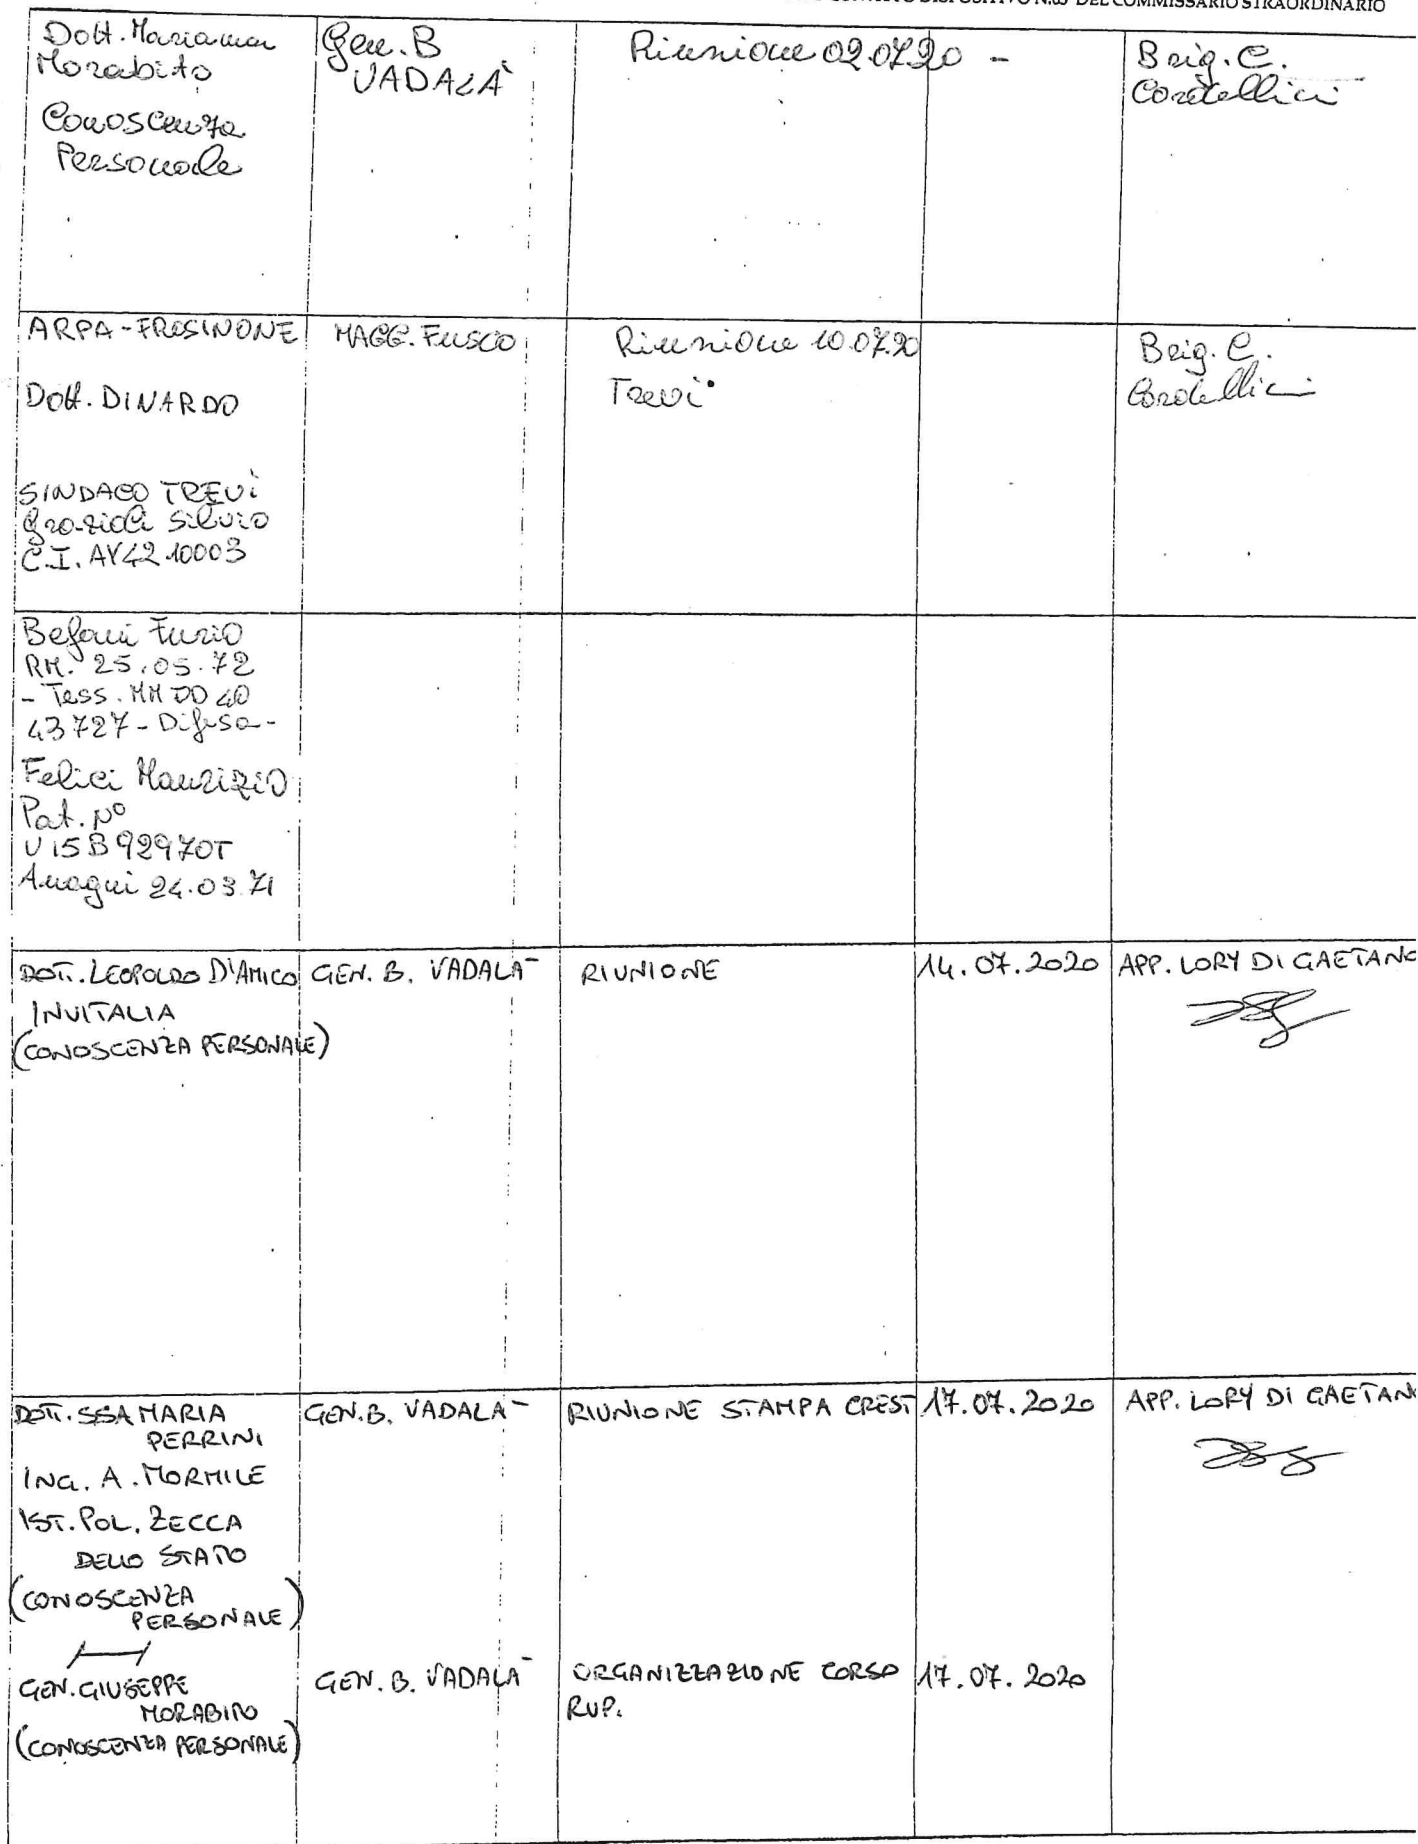 DISPOSITIVO N.65 DEL COMMISSARIO STRAORDINARIO
Dott. Marianna
Morabito
Conoscenza
Personale
Gen. B
VADALÀ
Riunione 02.07.20 -
Brig. C.
Cordellini
ARPA-FROSINONE
Dott. DINARDO
SINDACO TREVI
Grazioli Silvio
C.I. AY4210003
MAGG. FUSCO
Riunione 10.07.20
Trevi
Brig. C.
Cordellini
Befani Furio
RM. 25.05.72
- Tess. MM DD 40
43727 - Difesa -
Felici Maurizio
Pat. N°
U15B92970T
Anagni 24.03.71
DOTT. LEOPOLDO D'AMICO
INVITALIA
(CONOSCENZA PERSONALE)
GEN. B. VADALA-
RIUNIONE
14.07.2020
APP. LORY DI GAETANO
DOTT.SSA MARIA
PERRINI
ING. A. MORMILE
IST. POL. ZECCA
DELLO STATO
(CONOSCENZA
PERSONALE)
GEN.B. VADALA-
RIUNIONE STAMPA CREST
17.07.2020
APP. LORY DI GAETANO
GEN. GIUSEPPE
MORABITO
(CONOSCENZA PERSONALE)
GEN. B. VADALA-
ORGANIZZAZIONE CORSO
RUP.
17.07.2020